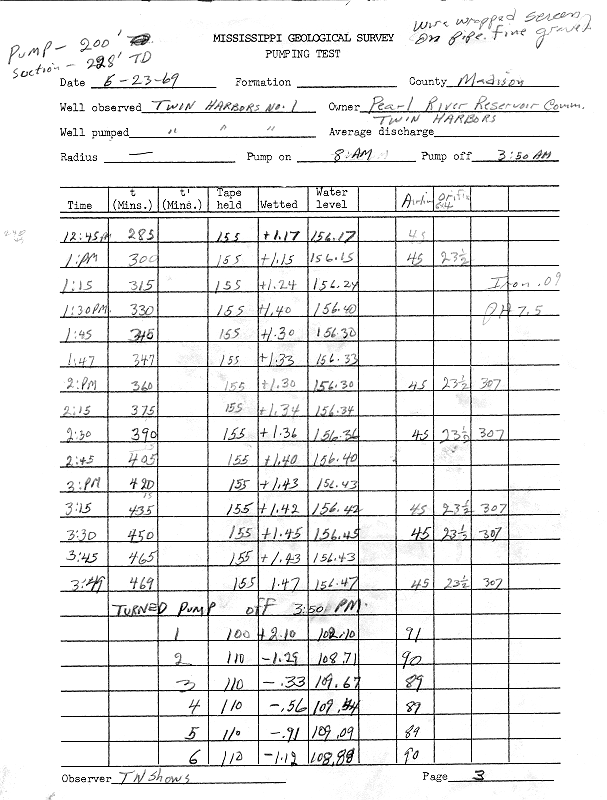 PUMP - 200' TD
Suction - 228' TD
wire wrapped screen
on pipe. fine gravel
MISSISSIPPI GEOLOGICAL SURVEY
PUMPING TEST
Date 5-23-69 Formation County Madison
Well observed TWIN HARBORS No. 1 Owner Pearl River Reservoir Comm.
TWIN HARBORS
Well pumped " " " Average discharge
Radius — Pump on 8:AM Pump off 3:50 AM
Time t (Mins.) t' (Mins.) Tape held Wetted Water level Airline orific
12:45PM 285 155 +1.17 156.17 45
1:PM 300 155 +1.15 156.15 45 23½
1:15 315 155 +1.24 156.24 Iron .09
1:30PM 330 155 +1.40 156.40 PH 7.5
1:45 345 155 +1.30 156.30
1:47 347 155 +1.33 156.33
2:PM 360 155 +1.30 156.30 45 23½ 307
2:15 375 155 +1.34 156.34
2:30 390 155 +1.36 156.36 45 23½ 307
2:45 405 155 +1.40 156.40
3:PM 420 155 +1.43 156.43
3:15 435 155 +1.42 156.42 45 23½ 307
3:30 450 155 +1.45 156.45 45 23½ 307
3:45 465 155 +1.43 156.43
3:49 469 155 1.47 156.47 45 23½ 307
TURNED PUMP OFF 3:50 PM.
1 100 +2.10 102.10 91
2 110 -1.29 108.71 90
3 110 -.33 109.67 89
4 110 -.56 109.54 89
5 110 -.91 109.09 89
6 110 -1.12 108.88 90
Observer TN Shows Page 3